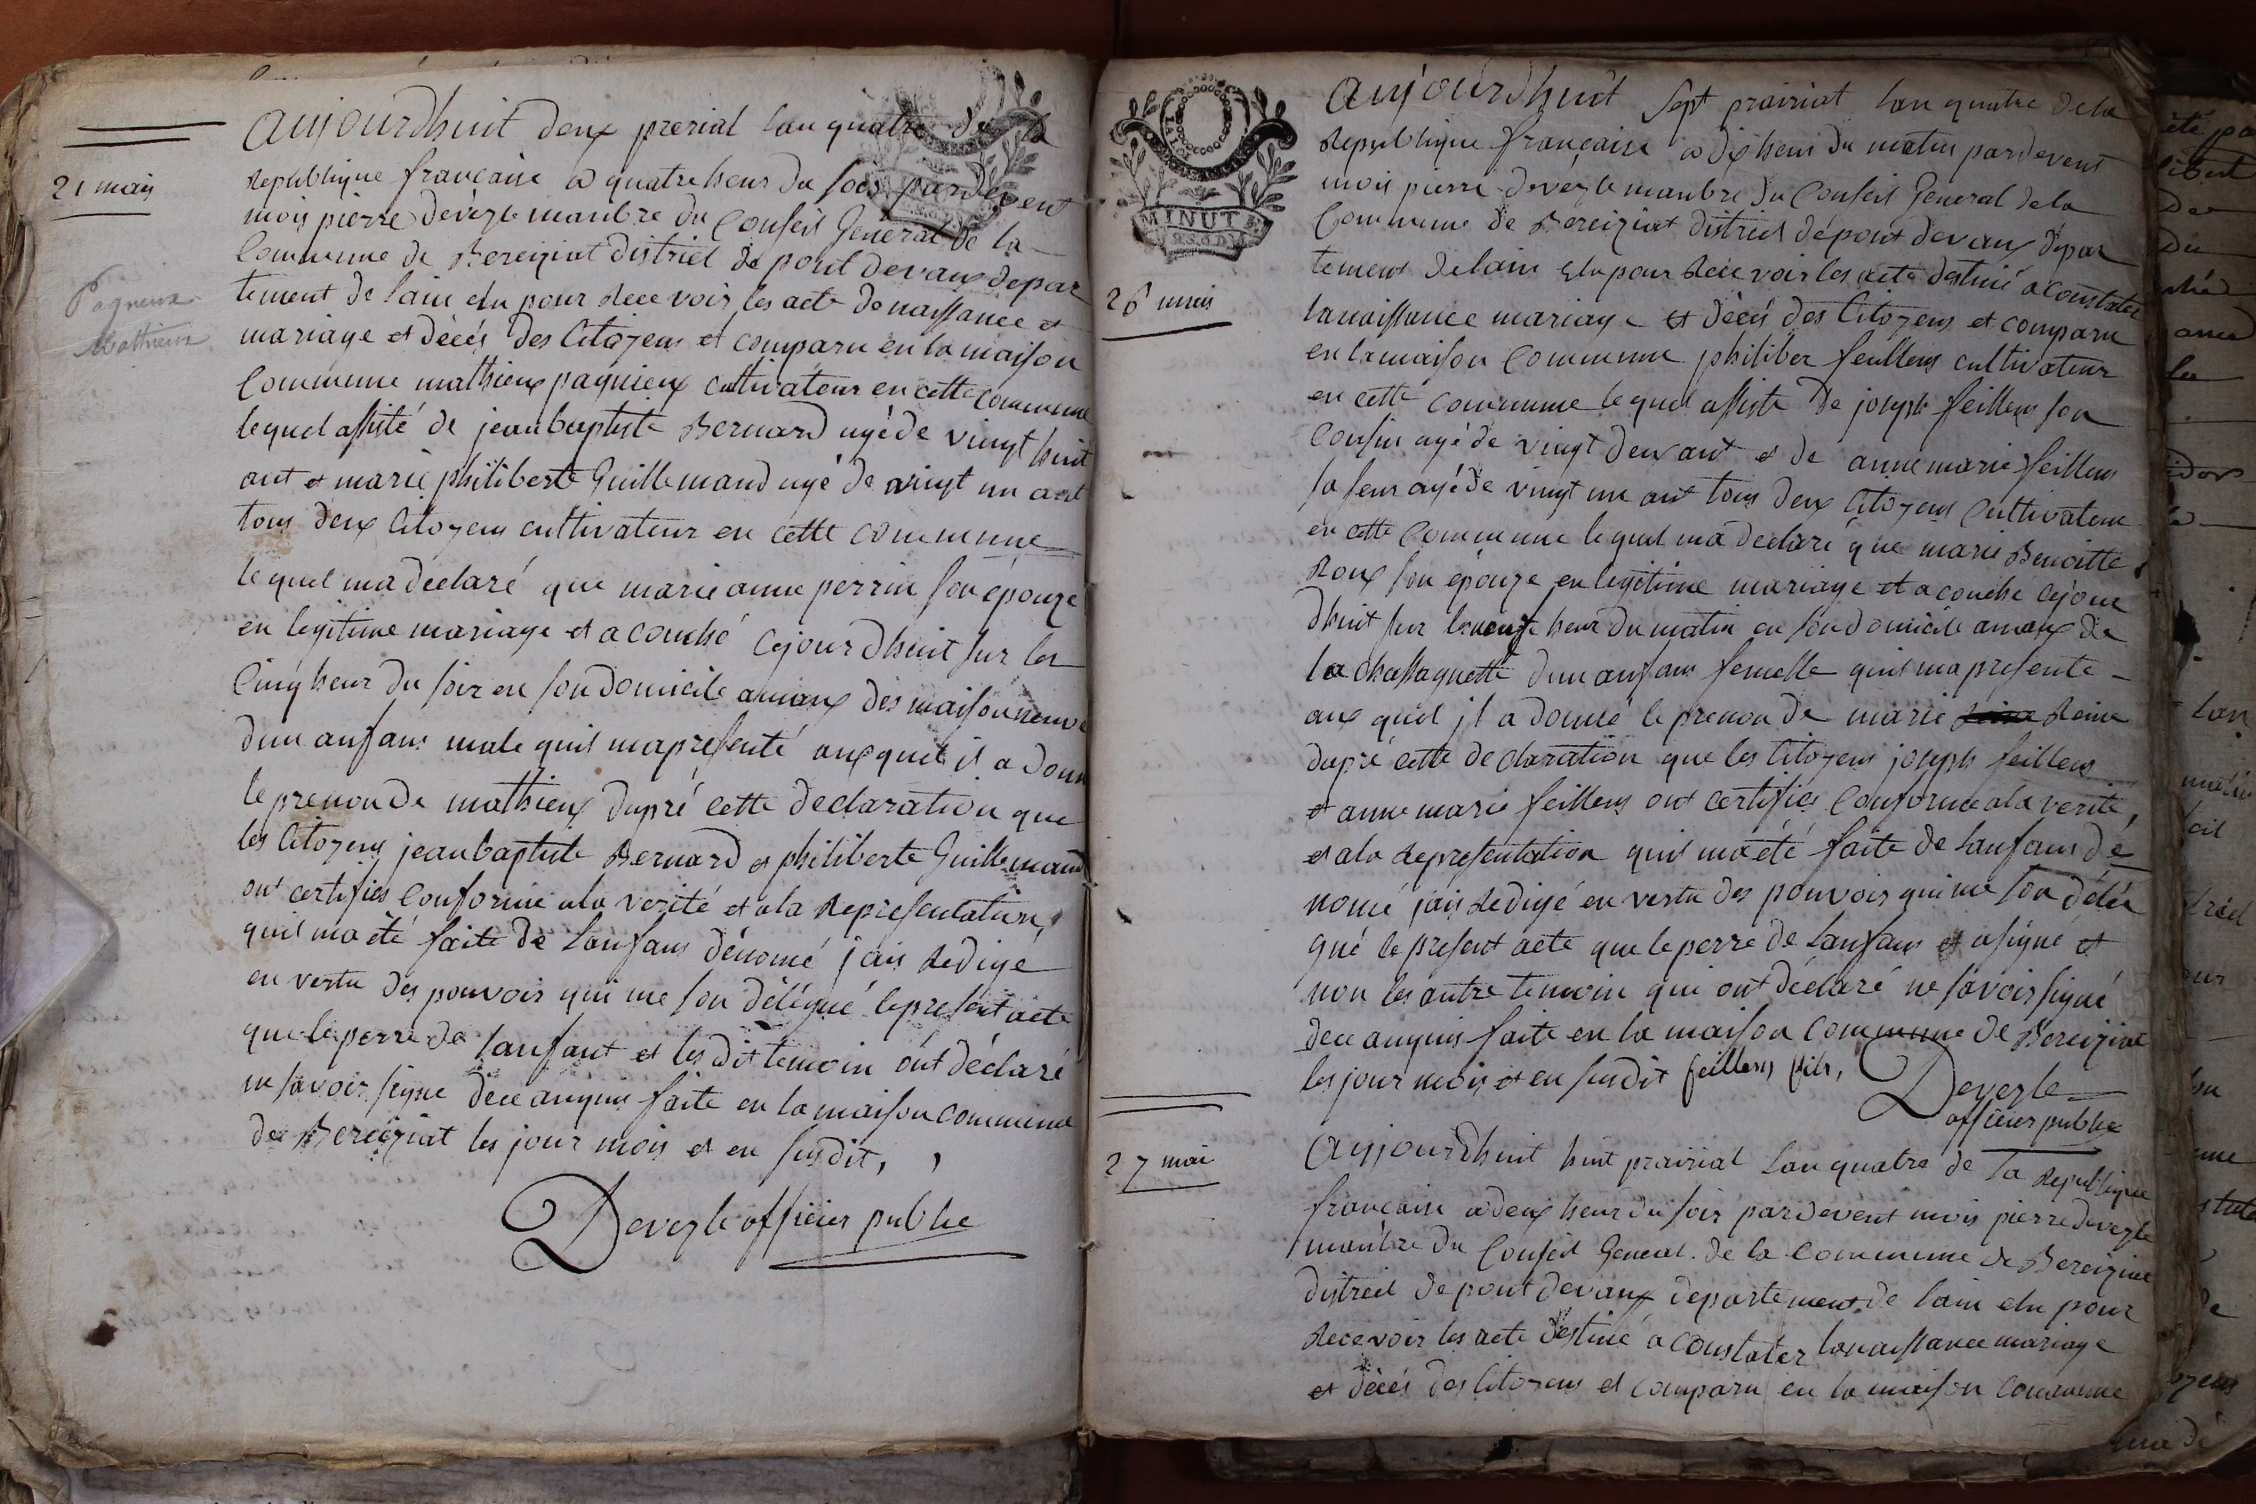 21 mais
Pagneux
Mathieux
aujourdhuit deux prerial lan quatre de la
Republique francaise a quatre heur du soir pardevent
mois pierre deveyle manbre du Conseil General de la
Commune de Bereiziat district de pont devaux depar
tement de lain elu pour Recevoir les acte de naissance et
mariage et décés des Citoyens et comparu en la maison
Commune mathieux pagnieux cultivateur en cette commune
lequel assisté de jean baptiste Bernard agé de vingt huit
ant et marie philiberte Guillemaud agé de vingt un ant
tous deux Citoyens cultivateur en cette commune
lequel ma declaré que marie anne perrin son épouze
en legitime mariage et a couché cejourdhuit sur les
Cinq heur du soir en son domicile amaux des maison neuve
dun anfans male quil ma presenté auxquel il a donn
le prenon de mathieux dupré cette declaration que
les Citoyens jean baptiste Bernard et philiberte Guillemaud
ont certifies conforme ala verité et ala Representation,
quil ma été faite de lanfans dénomé jais Redigé
en vertu des pouvoir qui me son délégué le present acte
que le perre de lanfant et les dit temoin ont déclaré
ne savoir signe dece anquis faite en la maison commune
de Bereiziat les jour mois et en susdit,
Deveyle officier publie
MINUT
26 mais
aujourdhuit sept prairiat lan quatre de la
Republique française a dix heur du matin pardevent
mois pierre deveyle manbre du Conseil General de la
Commune de Bereiziat district dépont devaux depar
tement de lain elu pour Recevoir les acte destiné a constater
la naissance mariage et décés des Citoyens et comparu
en la maison Commune philiber feillens cultivateur
en cette commune lequel assiste de joseph feillens son
Cousin agé de vingt deux ant et de anne marie feillens
sa seur agé de vingt un ant tous deux Citoyens Cultivateur
en cette Commune lequel ma declaré que marie Benoitte
Roux son épouze en legitime mariage et a couché cejour
dhuit sur heur du matin en son domicile amaux de
la Chassagnette dun anfans femelle quil ma presente
aux quel jl a donné le prenon de marie Reine
dupré cette declaration que les Citoyens joseph feillens
et anne marie feillens ont certifies Conforme ala verité,
et ala Representation quil ma été faite de lanfans dé
nomé jais Redigé en vertu des pouvoir qui me son délé
gué le present acte que le perre de lanfans et a signé et
non les autre temoin qui ont déclaré ne savoir signé
dece anquis faite en la maison commune de Bereiziat
les jour mois et en susdit feillens fils,
Deveyle
officier publie
27 mai
aujourdhuit huit prairial Lan quatre de la Republique
francaise a deux heur du soir pardevent mois pierre deveyle
manbre du Conseil General de la Commune de Bereiziat
district de pont devaux departement de lain elu pour
Recevoir les acte destiné a constater la naissance mariage
et décés des Citoyens et comparu en la maison commune